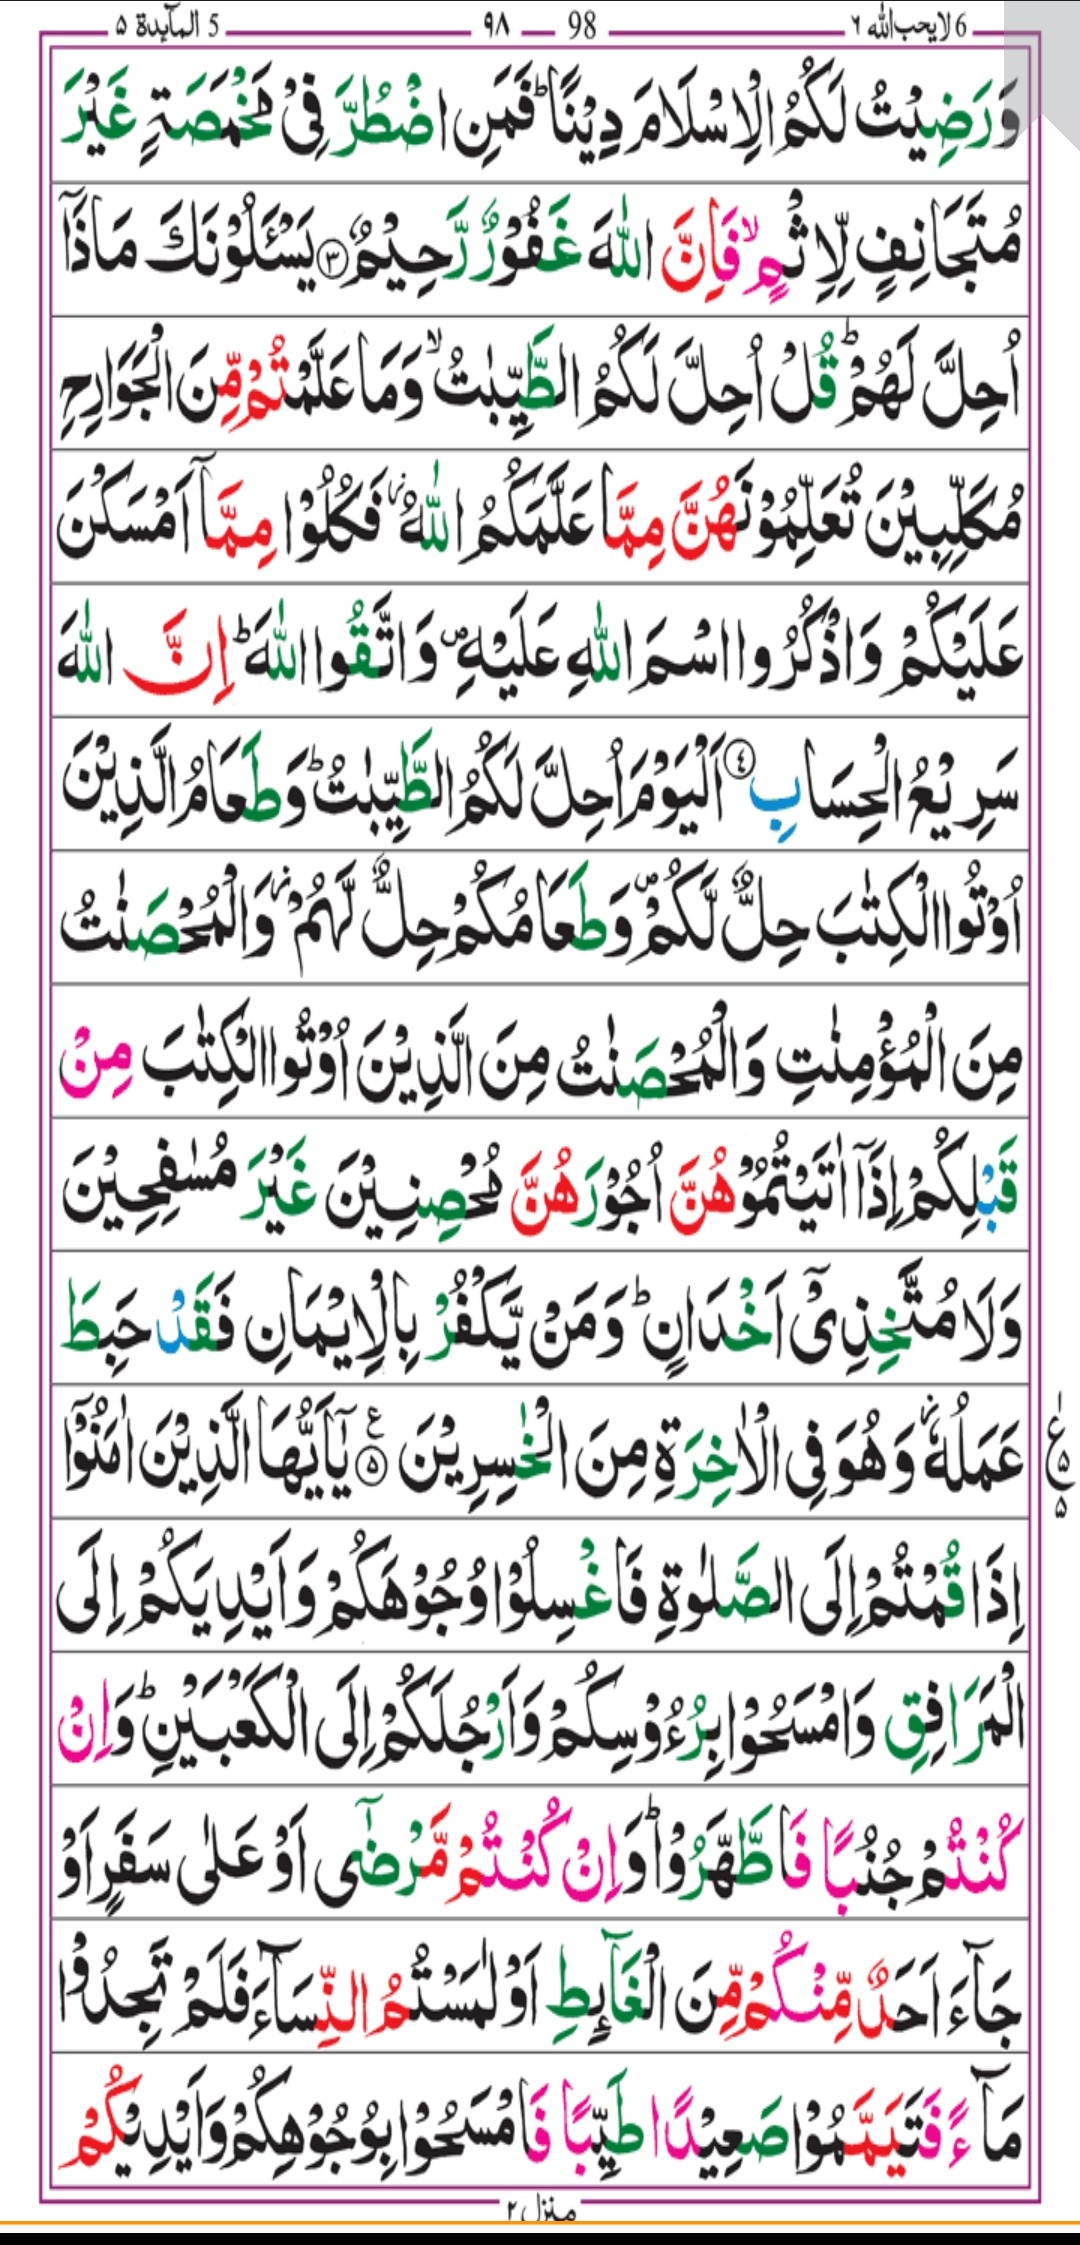 6 لایحب الله ٦ 98 — ٩٨ 5 المآیدة ٥
وَرَضِیْتُ لَكُمُ الْاِسْلَامَ دِیْنًاؕ فَمَنِ اضْطُرَّ فِیْ مَخْمَصَةٍ غَیْرَ
مُتَجَانِفٍ لِّاِثْمٍۙ فَاِنَّ اللّٰهَ غَفُوْرٌ رَّحِیْمٌ ﴿٣﴾ یَسْـَٔلُوْنَكَ مَاذَاۤ
اُحِلَّ لَهُمْؕ قُلْ اُحِلَّ لَكُمُ الطَّیِّبٰتُۙ وَمَا عَلَّمْتُمْ مِّنَ الْجَوَارِحِ
مُكَلِّبِیْنَ تُعَلِّمُوْنَهُنَّ مِمَّا عَلَّمَكُمُ اللّٰهُؗ فَكُلُوْا مِمَّاۤ اَمْسَكْنَ
عَلَیْكُمْ وَاذْكُرُوا اسْمَ اللّٰهِ عَلَیْهِ۪ وَاتَّقُوا اللّٰهَؕ اِنَّ اللّٰهَ
سَرِیْعُ الْحِسَابِ ﴿٤﴾ اَلْیَوْمَ اُحِلَّ لَكُمُ الطَّیِّبٰتُؕ وَطَعَامُ الَّذِیْنَ
اُوْتُوا الْكِتٰبَ حِلٌّ لَّكُمْ۪ وَطَعَامُكُمْ حِلٌّ لَّهُمْؗ وَالْمُحْصَنٰتُ
مِنَ الْمُؤْمِنٰتِ وَالْمُحْصَنٰتُ مِنَ الَّذِیْنَ اُوْتُوا الْكِتٰبَ مِنْ
قَبْلِكُمْ اِذَاۤ اٰتَیْتُمُوْهُنَّ اُجُوْرَهُنَّ مُحْصِنِیْنَ غَیْرَ مُسٰفِحِیْنَ
وَلَا مُتَّخِذِیْۤ اَخْدَانٍؕ وَمَنْ یَّكْفُرْ بِالْاِیْمَانِ فَقَدْ حَبِطَ
عَمَلُهٗؗ وَهُوَ فِی الْاٰخِرَةِ مِنَ الْخٰسِرِیْنَ ﴿٥﴾ ع یٰۤاَیُّهَا الَّذِیْنَ اٰمَنُوْۤا
ع ٥ ٥
اِذَا قُمْتُمْ اِلَی الصَّلٰوةِ فَاغْسِلُوْا وُجُوْهَكُمْ وَاَیْدِیَكُمْ اِلَی
الْمَرَافِقِ وَامْسَحُوْا بِرُءُوْسِكُمْ وَاَرْجُلَكُمْ اِلَی الْكَعْبَیْنِؕ وَاِنْ
كُنْتُمْ جُنُبًا فَاطَّهَّرُوْاؕ وَاِنْ كُنْتُمْ مَّرْضٰۤی اَوْ عَلٰی سَفَرٍ اَوْ
جَآءَ اَحَدٌ مِّنْكُمْ مِّنَ الْغَآىِٕطِ اَوْ لٰمَسْتُمُ النِّسَآءَ فَلَمْ تَجِدُوْا
مَآءً فَتَیَمَّمُوْا صَعِیْدًا طَیِّبًا فَامْسَحُوْا بِوُجُوْهِكُمْ وَاَیْدِیْكُمْ
منزل ٢